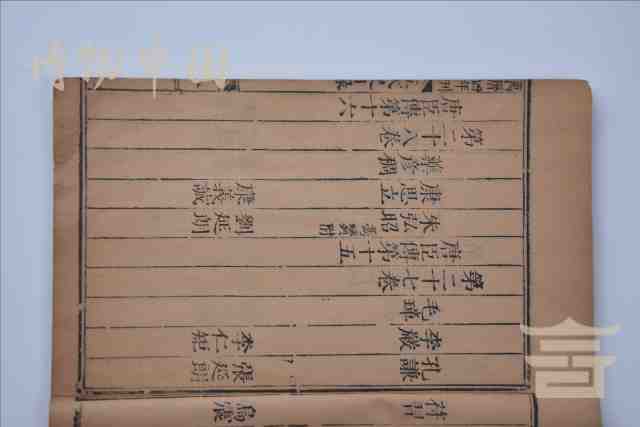 符習　烏震
孔謙　張延朗
李嚴　李仁矩
毛璋
第二十七卷
唐臣傳第十五
朱弘昭馮贇附　劉延朗
康思立　康義誠
藥彥稠
第二十八卷
唐臣傳第十六